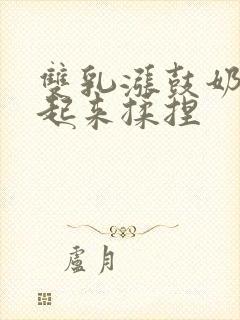 雙乳漲鼓奶
起来揉捏
盧月